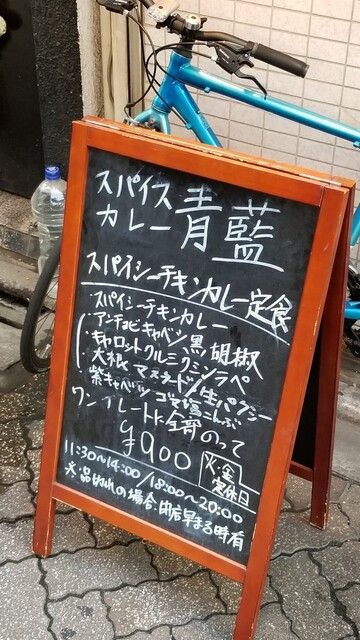 スパイス
カレー 青藍
スパイシーチキンカレー定食
・スパイシーチキンカレー
・アンチョビキャベツ/黒胡椒
・キャロットクルミクミンラペ
・大根マスタード/生パクシー
・紫キャベツ ゴマ塩こんぶ
ワンプレートに全部のって
¥900
火・金
定休日
11:30~14:00/18:00~20:00
※品切れの場合、閉店早まる時有